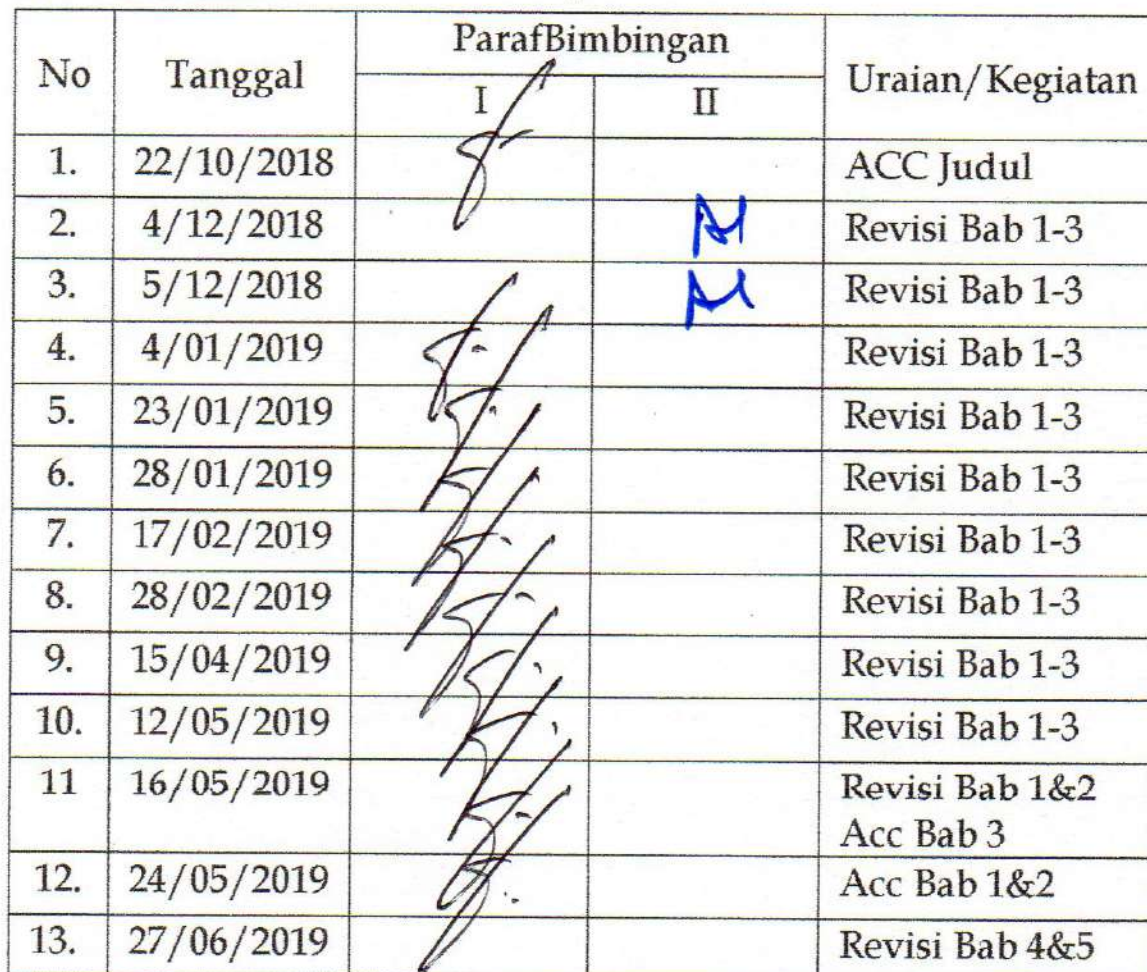 No Tanggal ParafBimbingan Uraian/Kegiatan
I II
1. 22/10/2018 ACC Judul
2. 4/12/2018 Revisi Bab 1-3
3. 5/12/2018 Revisi Bab 1-3
4. 4/01/2019 Revisi Bab 1-3
5. 23/01/2019 Revisi Bab 1-3
6. 28/01/2019 Revisi Bab 1-3
7. 17/02/2019 Revisi Bab 1-3
8. 28/02/2019 Revisi Bab 1-3
9. 15/04/2019 Revisi Bab 1-3
10. 12/05/2019 Revisi Bab 1-3
11 16/05/2019 Revisi Bab 1&2
Acc Bab 3
12. 24/05/2019 Acc Bab 1&2
13. 27/06/2019 Revisi Bab 4&5